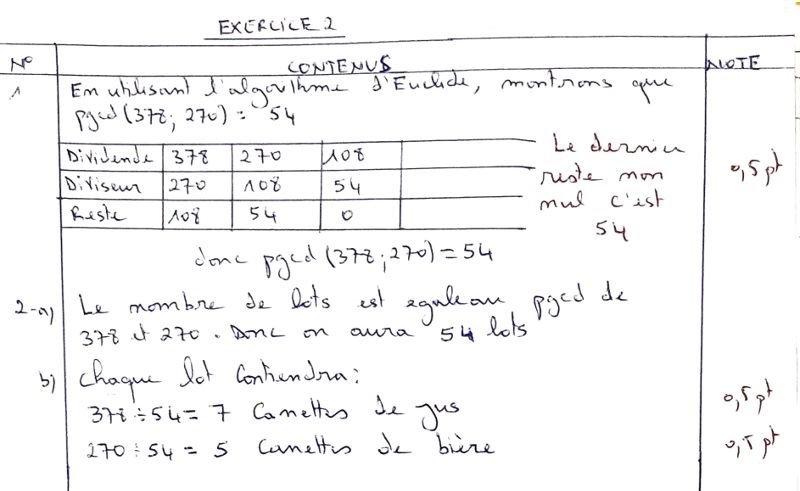 EXERCICE 2
N° CONTENUS NOTE
1 En utilisant l'algorithme d'Euclide, montrons que
pgcd(378; 270) = 54
Dividende 378 270 108
Diviseur 270 108 54
Reste 108 54 0
Le dernier
reste non
nul c'est
54
0,5 pt
donc pgcd(378; 270) = 54
2-a) Le nombre de lots est egale au pgcd de
378 et 270. Donc on aura 54 lots
b) Chaque lot Contiendra:
378 ÷ 54 = 7 Canettes de jus 0,5 pt
270 ÷ 54 = 5 Canettes de bière 0,5 pt